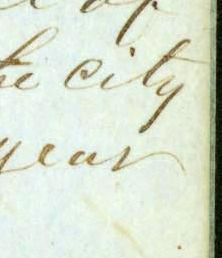 of
the city
year